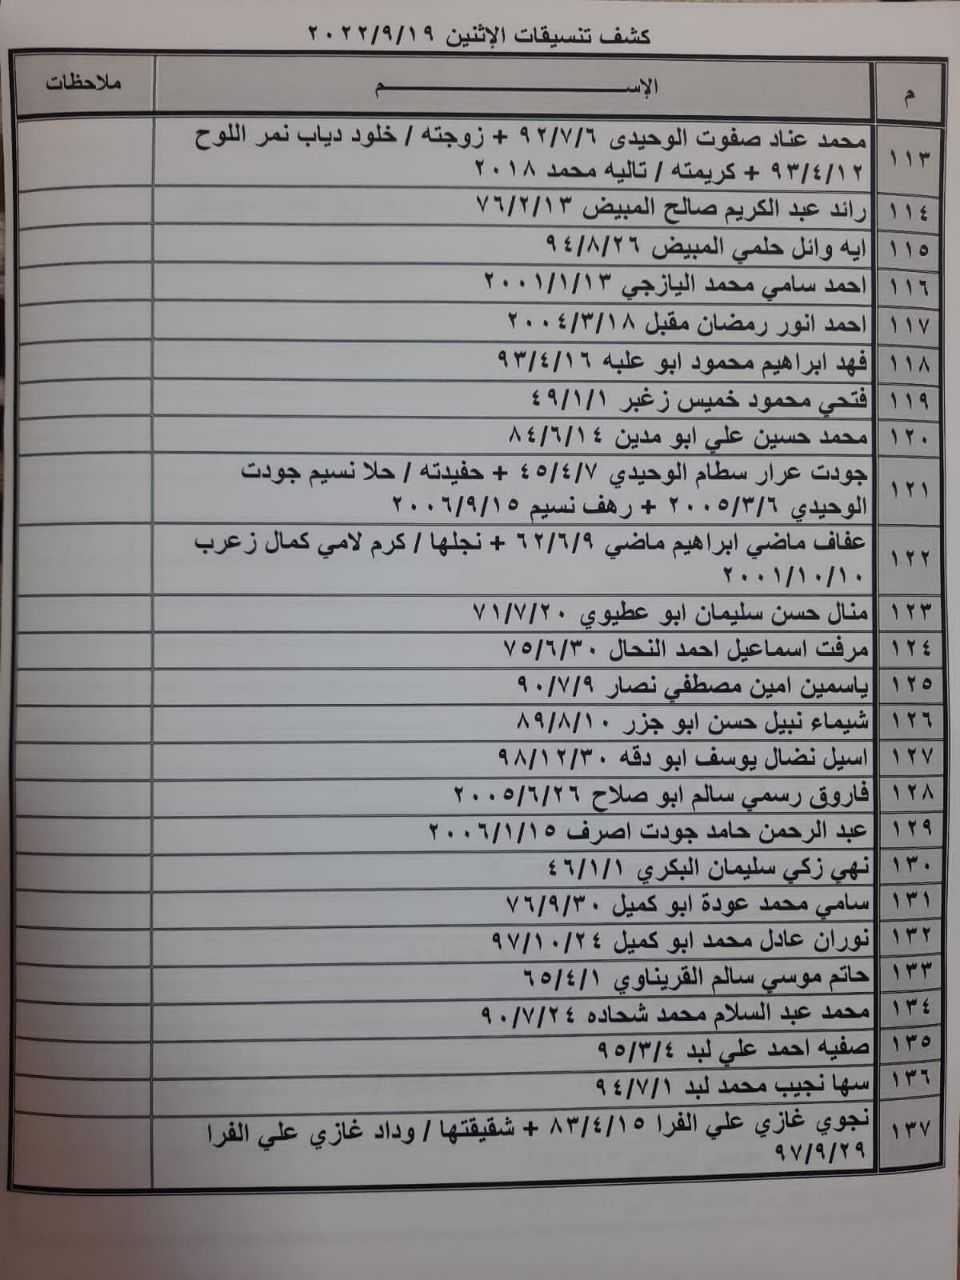 كشف تنسيقات الإثنين ٢٠٢٢/٩/١٩
م الإســـــــم ملاحظات
١١٣ محمد عناد صفوت الوحيدى ٩٢/٧/٦ + زوجته / خلود دياب نمر اللوح
٩٣/٤/١٢ + كريمته / تاليه محمد ٢٠١٨
١١٤ رائد عبد الكريم صالح المبيض ٧٦/٢/١٣
١١٥ ايه وائل حلمي المبيض ٩٤/٨/٢٦
١١٦ احمد سامي محمد اليازجي ٢٠٠١/١/١٣
١١٧ احمد انور رمضان مقبل ٢٠٠٤/٣/١٨
١١٨ فهد ابراهيم محمود ابو علبه ٩٣/٤/١٦
١١٩ فتحي محمود خميس زغبر ٤٩/١/١
١٢٠ محمد حسين علي ابو مدين ٨٤/٦/١٤
١٢١ جودت عرار سطام الوحيدي ٤٥/٤/٧ + حفيدته / حلا نسيم جودت
الوحيدي ٢٠٠٥/٣/٦ + رهف نسيم ٢٠٠٦/٩/١٥
١٢٢ عفاف ماضي ابراهيم ماضي ٦٢/٦/٩ + نجلها / كرم لامي كمال زعرب
٢٠٠١/١٠/١٠
١٢٣ منال حسن سليمان ابو عطيوي ٧١/٧/٢٠
١٢٤ مرفت اسماعيل احمد النحال ٧٥/٦/٣٠
١٢٥ ياسمين امين مصطفي نصار ٩٠/٧/٩
١٢٦ شيماء نبيل حسن ابو جزر ٨٩/٨/١٠
١٢٧ اسيل نضال يوسف ابو دقه ٩٨/١٢/٣٠
١٢٨ فاروق رسمي سالم ابو صلاح ٢٠٠٥/٦/٢٦
١٢٩ عبد الرحمن حامد جودت اصرف ٢٠٠٦/١/١٥
١٣٠ نهي زكي سليمان البكري ٤٦/١/١
١٣١ سامي محمد عودة ابو كميل ٧٦/٩/٣٠
١٣٢ نوران عادل محمد ابو كميل ٩٧/١٠/٢٤
١٣٣ حاتم موسي سالم القريناوي ٦٥/٤/١
١٣٤ محمد عبد السلام محمد شحاده ٩٠/٧/٢٤
١٣٥ صفيه احمد علي لبد ٩٥/٣/٤
١٣٦ سها نجيب محمد لبد ٩٤/٧/١
١٣٧ نجوي غازي علي الفرا ٨٣/٤/١٥ + شقيقتها / وداد غازي علي الفرا
٩٧/٩/٢٩